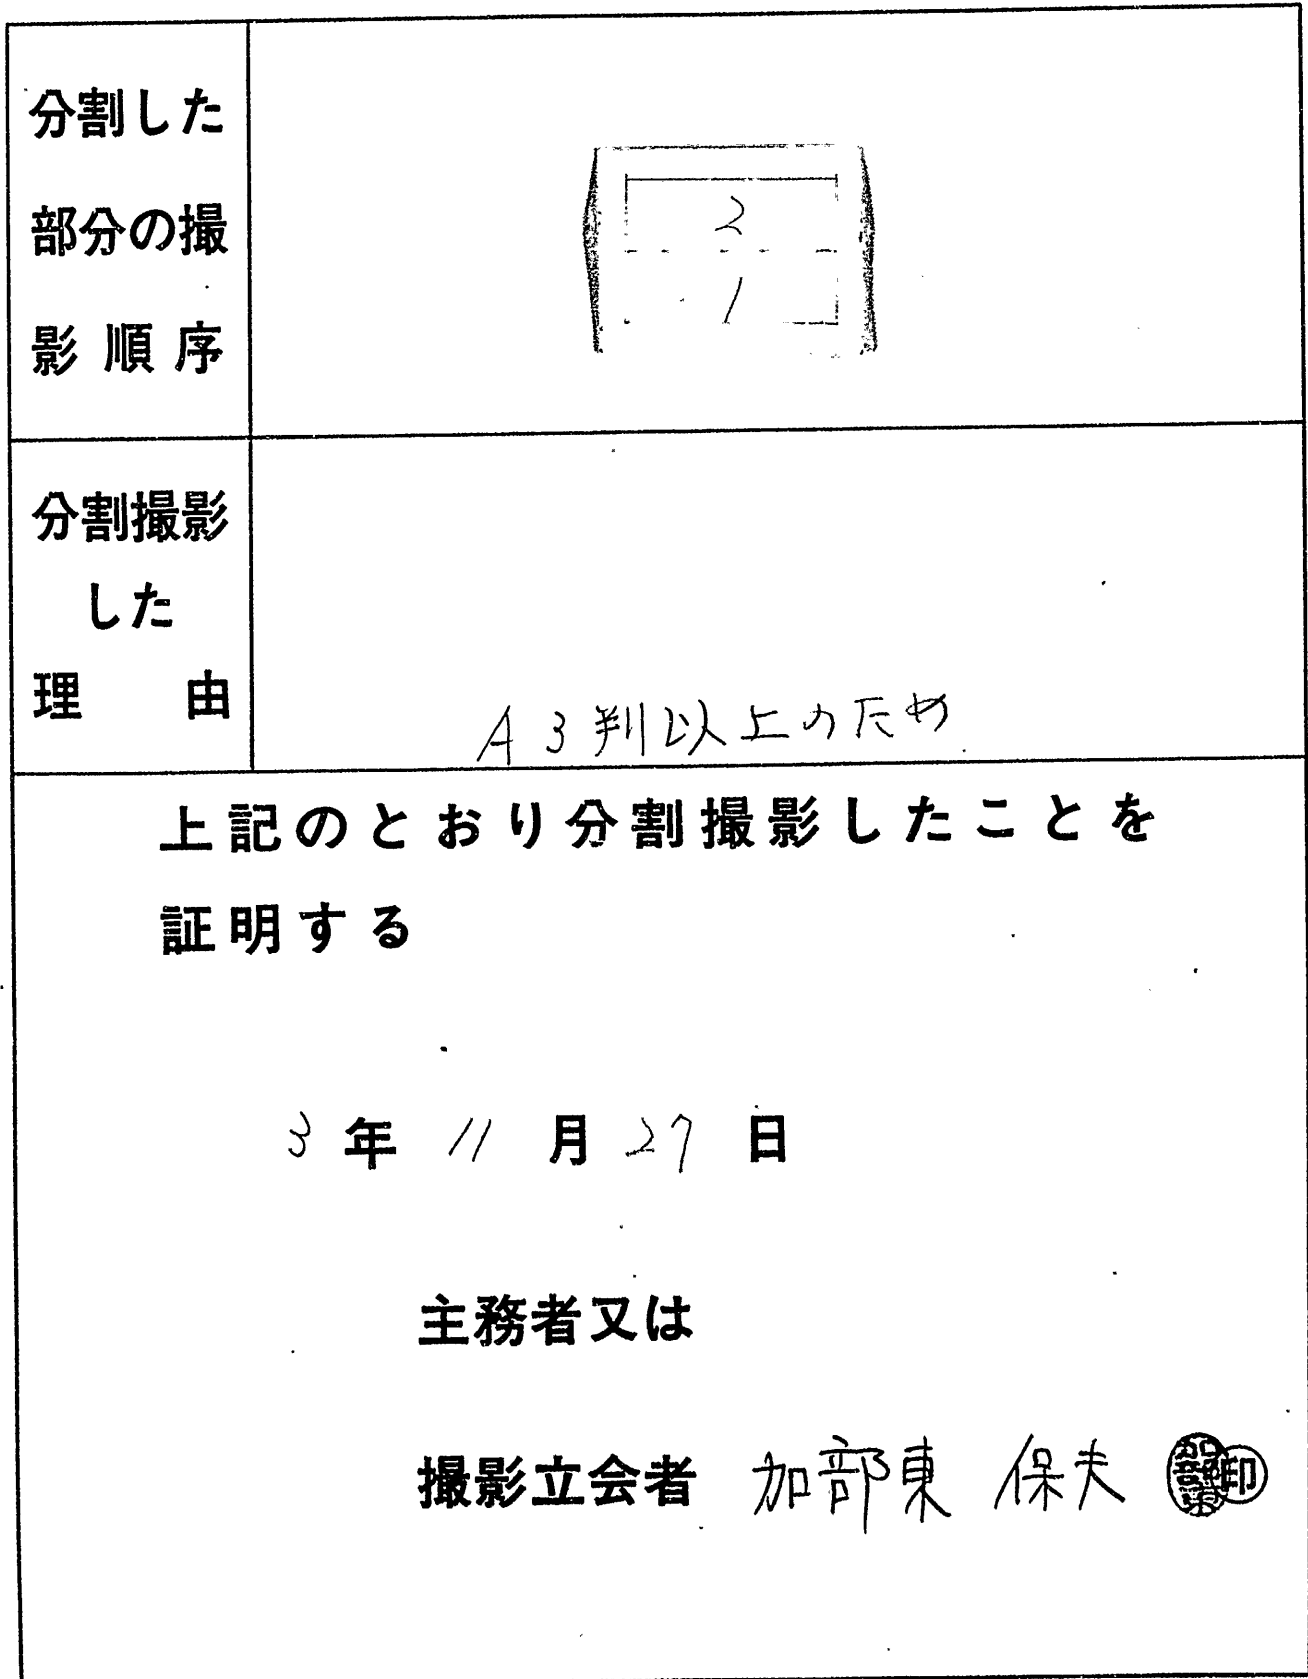 分割した
部分の撮
影順序
2
1
分割撮影
した
理由
A3判以上のため
上記のとおり分割撮影したことを
証明する
3年11月27日
主務者又は
撮影立会者 加部東 保夫 印
加部東